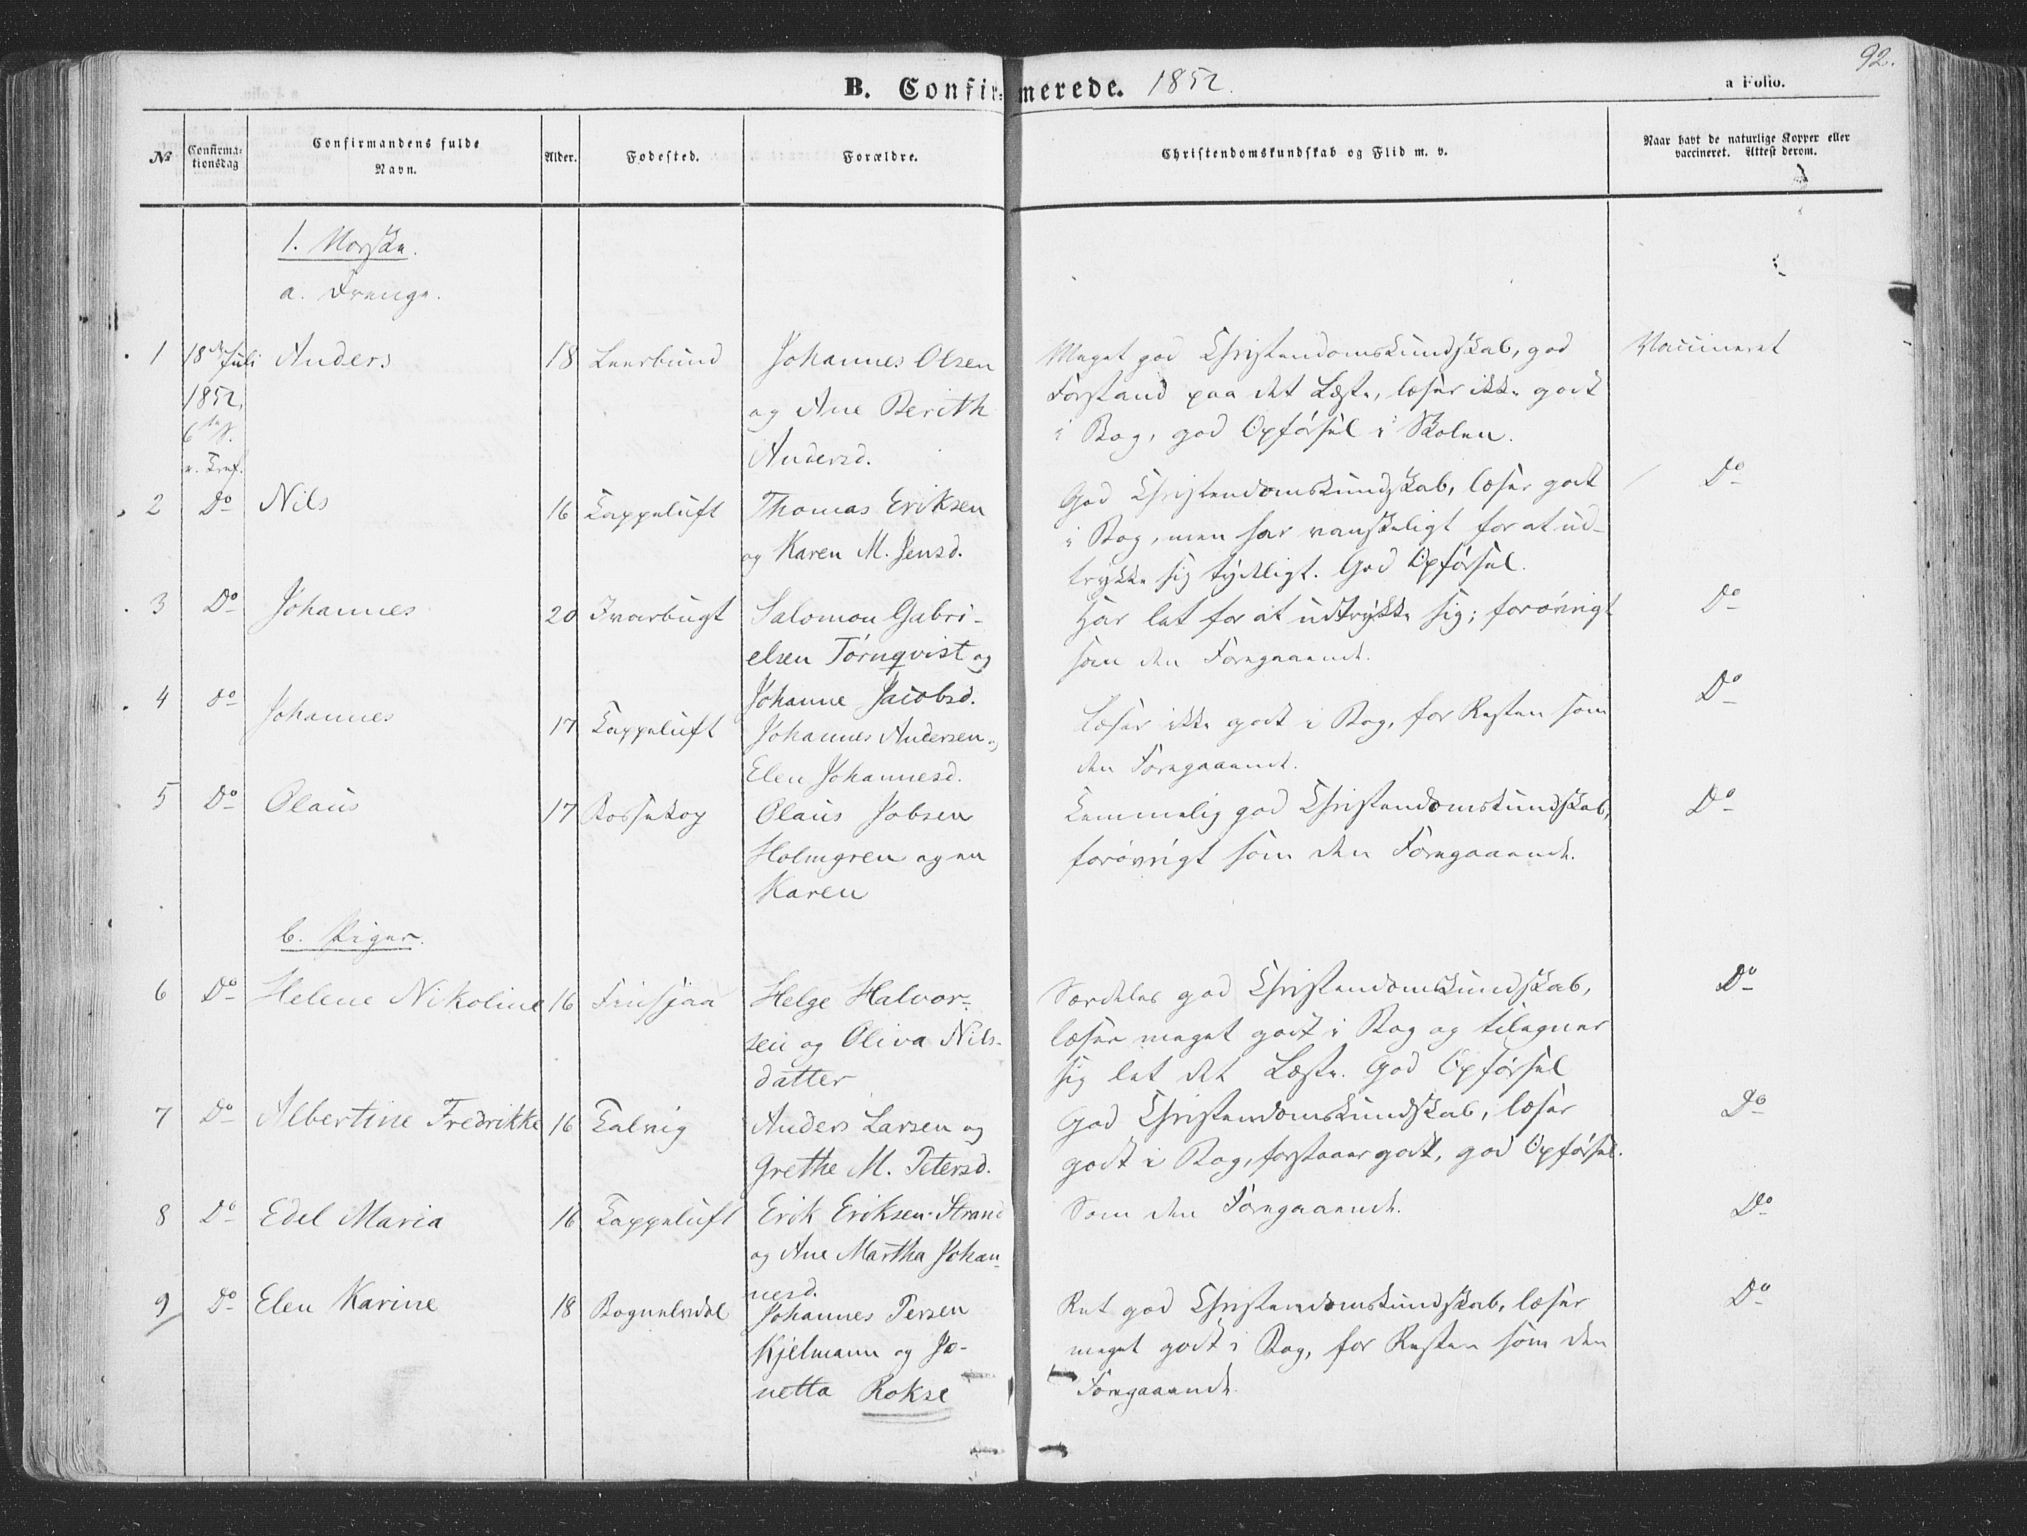 92.
B. Confirmerede. 1852.
a Folio.
No
Confirma-
tionsdag
Confirmandens fulde
Navn.
Alder.
Fødested.
Forældre.
Christendomskundskab og Flid m. v.
Naar havt de naturlige Kopper eller
vaccineret. Attest derom.
1. Norske.
a. Drenge.
1 18de Juli Anders 18 Leerbund Johannes Olsen Meget god Christendomskundskab, god Vaccineret
1852, og Ane Berith Forstand paa det Læste, læser ikke godt
6te S. Andersd. i Bog, god Opførsel i Skolen.
e. Tref.
2 Do Nils 16 Kappeluft Thomas Eriksen God Christendomskundskab, læser godt Do
og Karen M. Jensd. i Bog, men har vanskeligt for at ud-
trykke sig tydeligt. God Opførsel.
3 Do Johannes 20 Ivarbugt Salomon Gabri- Har let for at udtrykke sig; forøvrigt Do
elsen Törnqvist og som den Foregaaende.
Johanne Jacobsd.
4 Do Johannes 17 Kappeluft Johannes Andersen og Læser ikke godt i Bog, for Resten som Do
Elen Johannesd. den Foregaaende.
5 Do Olaus 17 Bossekop Olaus Jobsen Temmelig god Christendomskundskab, Do
Holmgren og en forøvrigt som den Foregaaende.
Karen
b. Piger.
6 Do Helene Nikoline 16 Helge Halvor- Særdeles god Christendomskundskab, Do
sen og Oliva Nils- læser meget godt i Bog og tilegner
datter sig let det Læste. God Opførsel
7 Do Albertine Fredrikke 16 Talvig Anders Larsen og God Christendomskundskab, læser Do
Grethe M. Petersd. godt i Bog, forstaaer godt, god Opførsel.
8 Do Edel Maria 16 Kappeluft Erik Eriksen Strand Som den Foregaaende. Do
og Ane Martha Johan-
nesd.
9 Do Elen Karine 18 Bognelvdal Johannes Persen Ret god Christendomskundskab, læser Do
Kjelmann og Jo- meget godt i Bog, for Resten som den
netta Rokse Foregaaende.